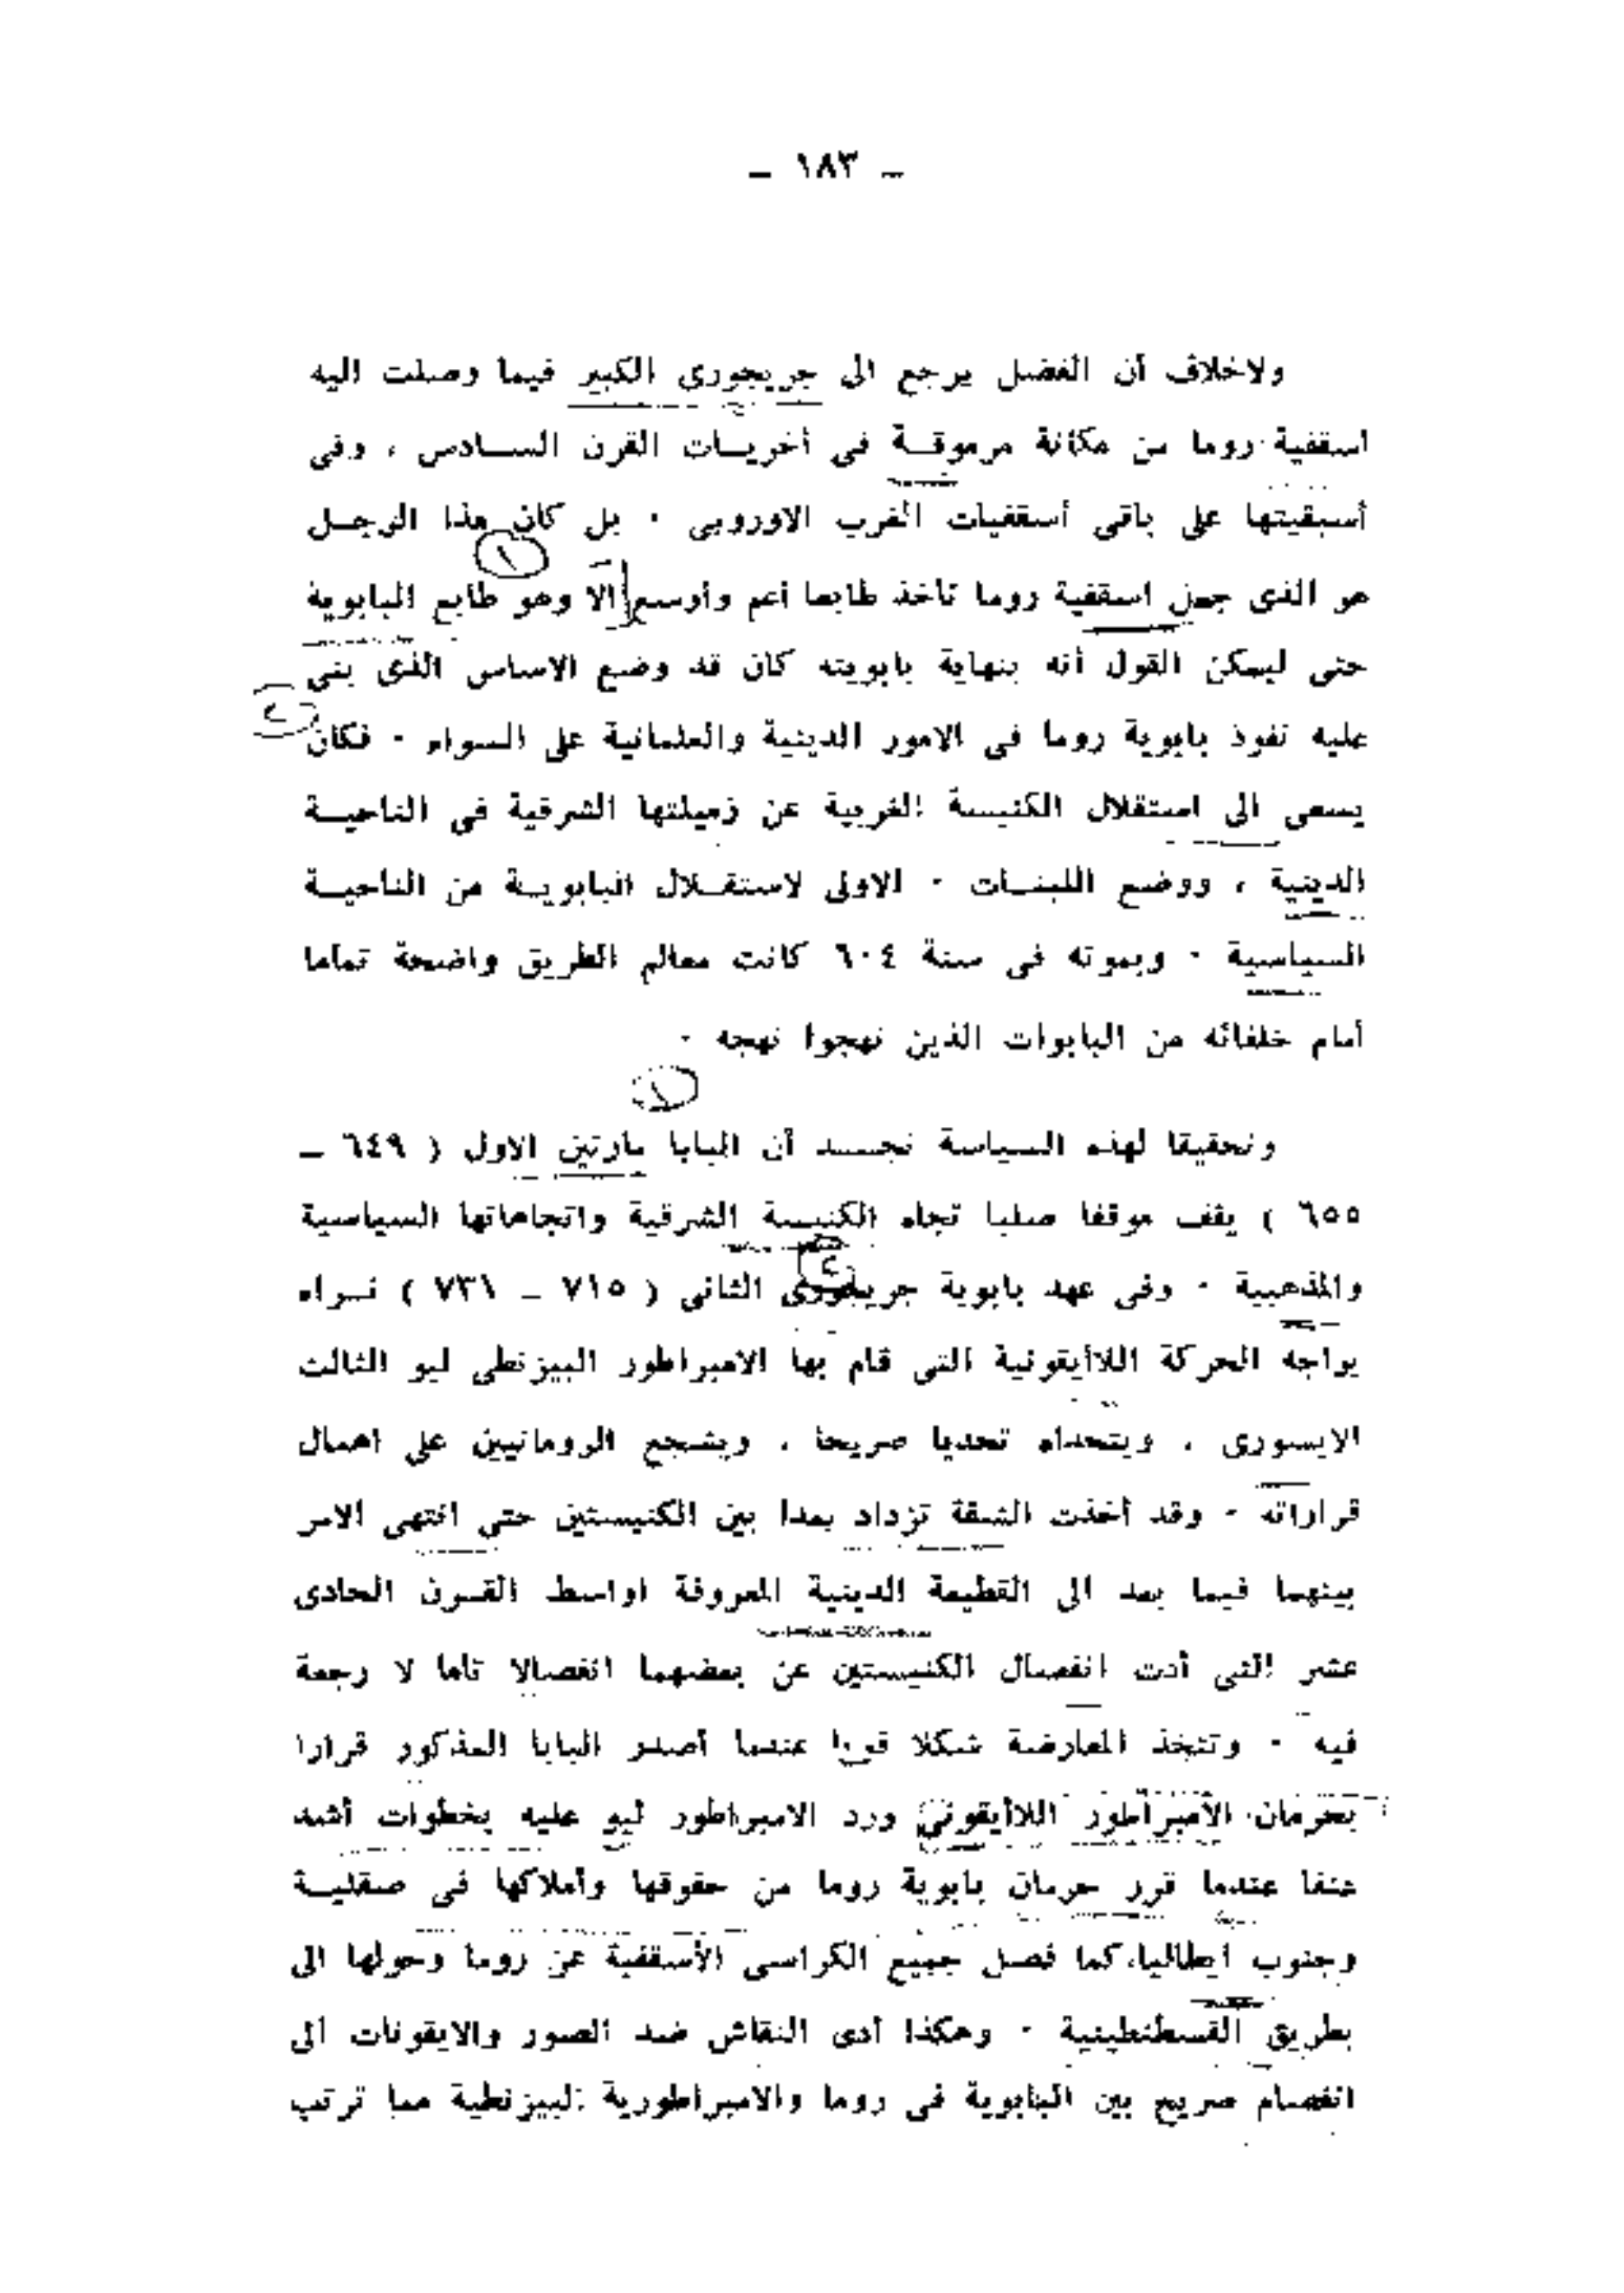 ـ ١٨٣ ـ
ولاخلاف أن الفضل يرجع الى جريجورى الكبير فيما وصلت اليه
اسقفية روما من مكانة مرموقـة فى أخريـات القرن السـادس ، وفى
أسبقيتها على باقى أسقفيات الغرب الاوروبى ٠ بل كان هذا الرجـل
هو الذى جعل اسقفية روما تأخذ طابعا أعم وأوسع الا وهو طابع البابوية
حتى ليمكن القول أنه بنهاية بابويته كان قد وضع الاساس الذى بنى
عليه نفوذ بابوية روما فى الامور الدينية والعلمانية على السواء ٠ فكان
يسعى الى استقلال الكنيسة الغربية عن زميلتها الشرقية فى الناحيـة
الدينية ، ووضع اللبنـات ٠ الاولى لاستقـلال البابويـة من الناحيـة
السياسية ٠ وبموته فى سنة ٦٠٤ كانت معالم الطريق واضحة تماما
أمام خلفائه من البابوات الذين نهجوا نهجه ٠
١
وتحقيقا لهذه السياسة نجـد أن البابا مارتين الاول ( ٦٤٩ ـ
٦٥٥ ) يقف موقفا صلبا تجاه الكنيسة الشرقية واتجاهاتها السياسية
والمذهبية ٠ وفى عهد بابوية جريجورى الثانى ( ٧١٥ ـ ٧٣١ ) نـراه
يواجه الحركة اللاأيقونية التى قام بها الامبراطور البيزنطى ليو الثالث
الايسورى ، ويتحداه تحديا صريحا ، ويشجع الرومانيين على اهمال
قراراته ٠ وقد أخذت الشقة تزداد بعدا بين الكنيستين حتى انتهى الامر
بينهما فيما بعد الى القطيعة الدينية المعروفة اواسط القـرن الحادى
عشر التى أدت انفصال الكنيستين عن بعضهما انفصالا تاما لا رجعة
فيه ٠ وتتخذ المعارضة شكلا قويا عندما أصدر البابا المذكور قرارا
بحرمان الأمبراطور اللاأيقونى ورد الامبراطور ليو عليه بخطوات أشد
عنفا عندما قرر حرمان بابوية روما من حقوقها وأملاكها فى صقليـة
وجنوب ايطاليا، كما فصل جميع الكراسى الأسقفية عن روما وحولها الى
بطريق القسطنطينية ٠ وهكذا أدى النقاش ضد الصور والايقونات الى
انفصام صريح بين البابوية فى روما والامبراطورية البيزنطية مما ترتب